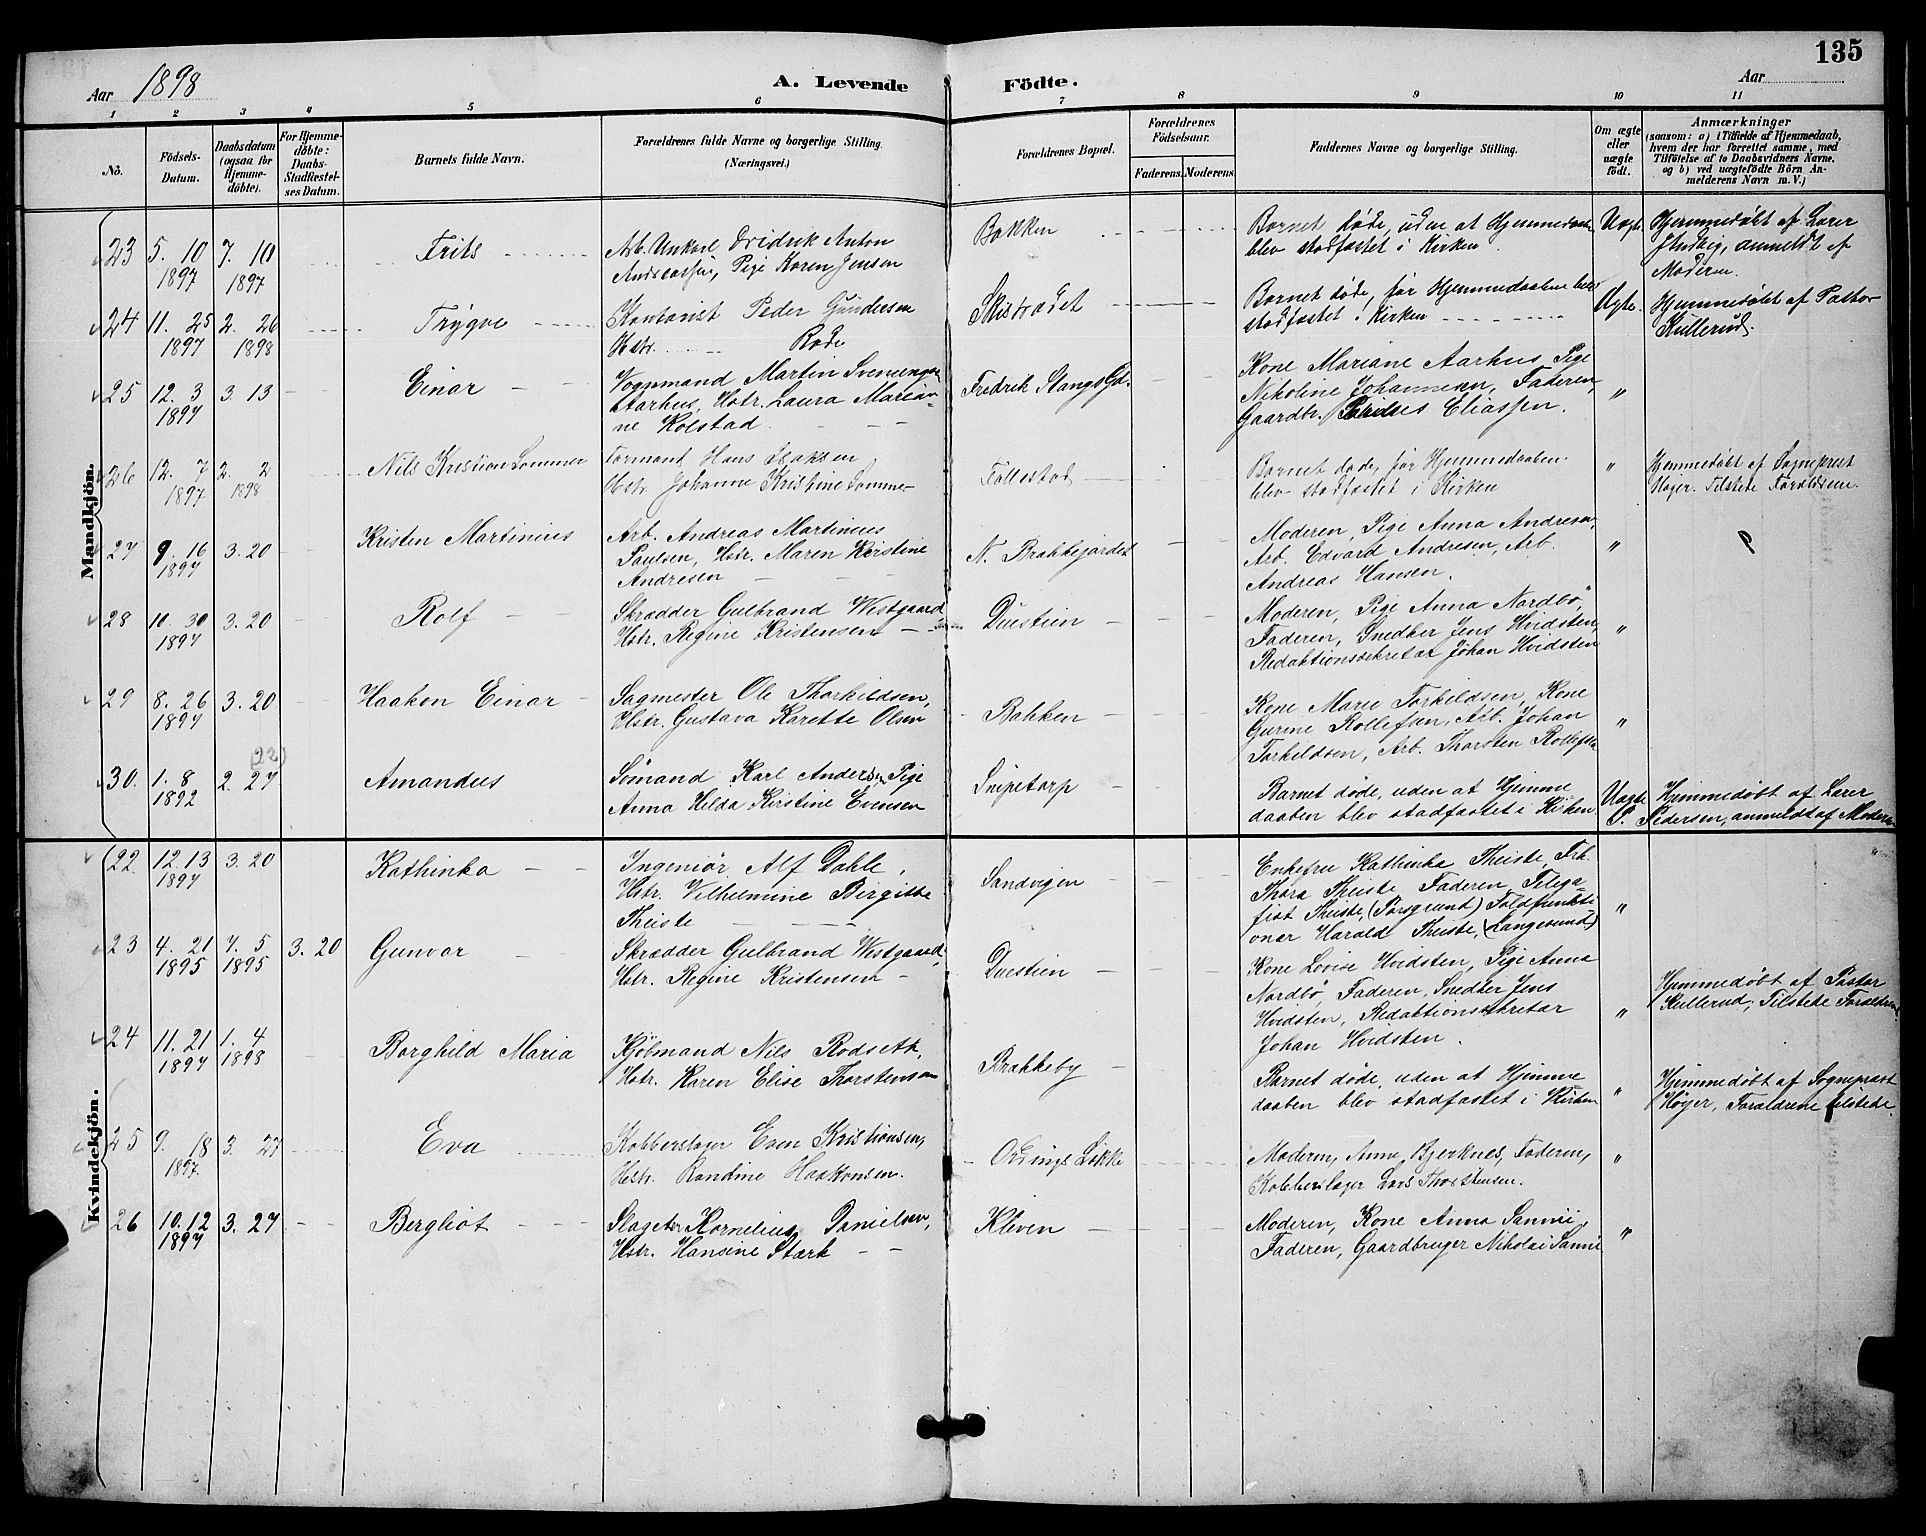 135
Aar 1898
A. Levende Födte.
Aar
1 2 3 4 5 6 7 8 9 10 11
No.
Födsels-Datum.
Daabsdatum (ogsaa för Hjemme-döbte).
For Hjemme-döbte: Daabs-Stadfæstel-ses Datum.
Barnets fulde Navn.
Forældrenes fulde Navne og borgerlige Stilling.
(Næringsvei.)
Forældrenes Bopæl.
Forældrenes Födselsaar.
Faderens. Moderens.
Faddernes Navne og borgerlige Stilling.
Om ægte eller uægte födt.
Anmærkninger
(saasom: a) i Tilfælde af Hjemmedaab, hvem der har forrettet samme, med Tilföielse af to Daabsvidners Navne, og b) ved uægtefödte Börn An-melderens Navn m. V.)
Mandkjön.
23 5. 10 1897 7. 10 1897 Frits
Arb. Unkarl Anton
Pige Karen Jensen
Bakken
Barnet døde, uden at Hjemmedaaben
blev stadfæstet i Kirken
Uægte
Hjemmedøbt af Lærer
anmeldt af
Moderen.
24 11. 25 1897 2. 26 1898 Trygve
Kontorist Peder Gundersen
Hstr. Rode
Barnet døde, før Hjemmedaaben blev
stadfæstet i Kirken
Ægte.
Hjemmedøbt af Pastor
Kullerud.
25 12. 3 1897 3. 13 Einar
Vognmand Martin Svennungsen
Aarhus, Hstr. Laura Marian-
ne Kolstad
Fredrik Stangs Gd.
Kone Mariane Aarhus, Pige
Nikoline Johannesen, Faderen,
Gaardbr. Eliassen.
"
26 12. 7 1897 2. 2 1898 Nils Kristian Sommer
Formand Hans Isaksen
Hstr. Johanne Kristine Sommer
Follestad
Barnet døde, før Hjemmedaaben
blev stadfæstet i Kirken
"
Hjemmedøbt af Sogneprest
Høyer. Tilstede Forældrene.
27 9. 16 1897 3. 20 Kristen Martinius
Arb. Andreas Martinius
Paulsen, Hstr. Maren Kirstine
Andresen
N. Brakkejordet
Moderen, Pige Anna Andresen,
Arb. Edvard Andresen, Arb.
Andreas Hansen.
"
28 10. 30 1897 3. 20 Rolf
Skrædder Gulbrand Westgaard,
Hstr. Regine Kristensen
Duestien
Moderen, Pige Anna Nordbö,
Faderen, Snedker Jens Hvidsten,
Redaktionssekretær Johan Hvidsten
"
29 8. 26 1897 3. 20 Haakon Einar
Sagmester Ole Thorkildsen,
Hstr. Gustava Karette Olsen
Bakken
Kone Marie Torkildsen, Kone
Gurine Rollefsen, Arb. Johan
Torkildsen, Arb. Thorsten Rollefsen
"
30. 1. 8 1892 2. 27 (22) Amandus
Sømand Karl Andersen, Pige
Anna Hilda Kirstine Evensen
Snipetorp
Barnet døde, uden at Hjemme
daaben blev stadfæstet i Kirken
Uægte
Hjemmedøbt af Lærer
P. Pedersen, anmeldt af Moderen
Kvindekjön.
22 12. 13 1897 3. 20 Kathinka
Ingeniør Alf Dahle,
Hstr. Vilhelmine Birgitte
Theiste
Sandvigen
Enkefru Kathinka Theiste, Frk.
Thora Theiste, Faderen, Telegra-
fist Theiste, (Porsgrund) Toldfunkti-
onær Harald Theiste, (Langesund)
"
23 4. 21 1895 7. 5 1895 3. 20 Gunvor
Skrædder Gulbrand Westgaard,
Hstr. Regine Kristensen
Duestien
Kone Lovise Hvidsten, Pige Anna
Nordbö, Faderen, Snedker Jens
Hvidsten, Redaktionssekretær
Johan Hvidsten.
"
Hjemmedøbt af Pastor
Kullerud, Tilstede Forældrene
24 11. 21 1897 1. 4 1898 Borghild Maria
Kjölmand Nils Rodseth,
Hstr. Karen Elise Thorstensen
Brakkeby
Barnet døde, uden at Hjemme
daaben blev stadfæstet i Kirken
"
Hjemmedøbt af Sogneprest
Høyer, Forældrene tilstede.
25 9. 18 1897. 3. 27 Eva
Kobberslager Even Kristiansen,
Hstr. Randine Haakonsen.
Ordings Løkke
Moderen, Anne Bjerknes, Faderen,
Kobberslager Lars Thorstensen.
"
26 10. 12 1897 3. 27 Bergliot
Slagter Kornelius Danielsen,
Hstr. Hansine Stærk
Kleven
Moderen, Kone Anna Sannii,
Faderen, Gaardbruger Nikolai Sannii
"